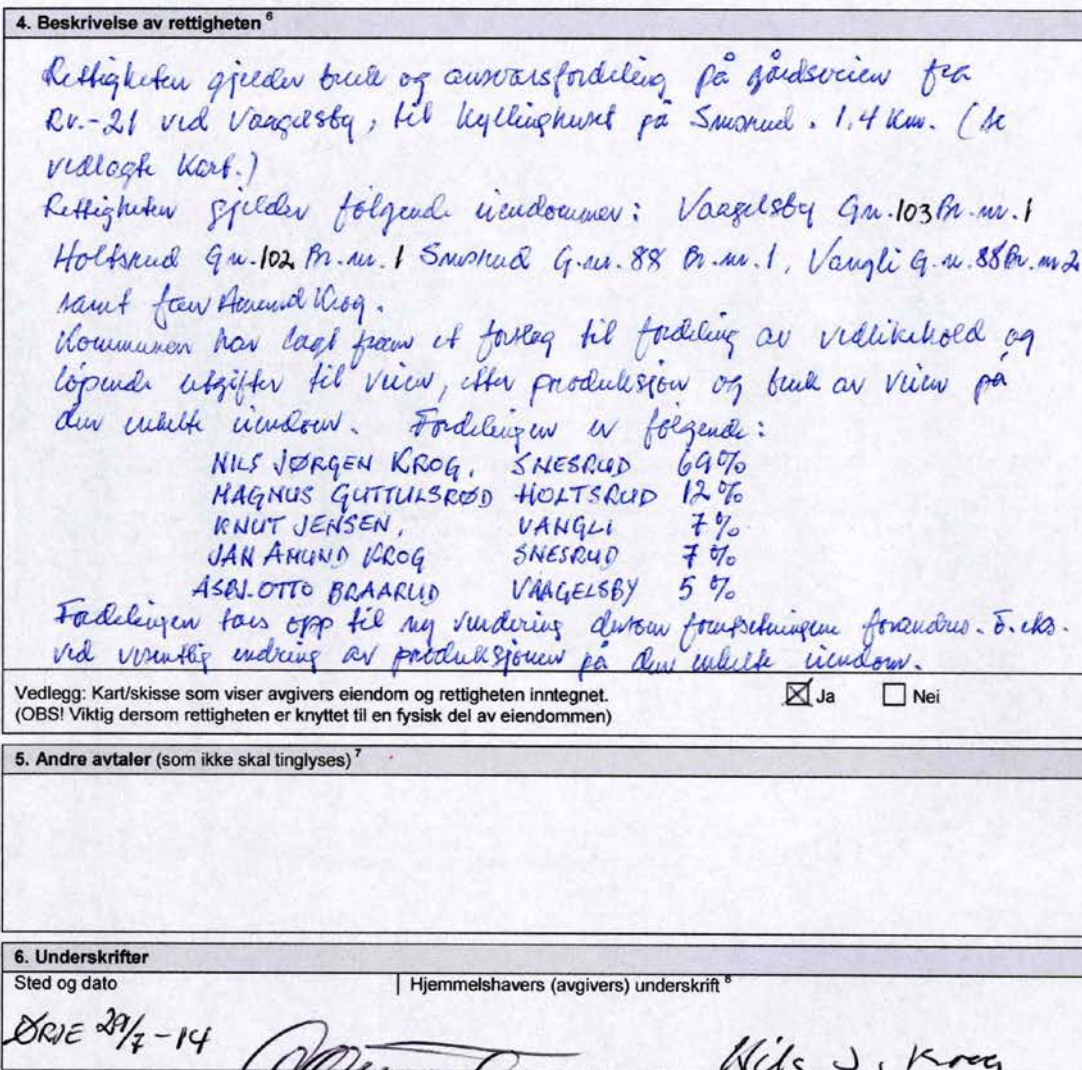 4. Beskrivelse av rettigheten 6
Rettigheten gjelder bruk og ansvarsfordeling på gårdsveien fra
Rv.-21 ved Vaagelsby, til kyllinghuset på Snesrud. 1,4 Km. (se
vedlagte Kart.)
Rettigheten gjelder følgende eiendommer: Vaagelsby Gn.103 Br.nr.1
Holtsrud Gn.102 Br.nr.1 Snesrud G.nr.88 Br.nr.1, Vangli G.n.88 Br.nr2
samt Amund Krog.
Kommunen har lagt fram et forslag til fordeling av vedlikehold og
løpende utgifter til veien, etter produksjon og bruk av veien på
den enkelte eiendom. Fordelingen er følgende:
NILS JØRGEN KROG, SNESRUD 69%
MAGNUS GUTTULSRØD HOLTSRUD 12%
KNUT JENSEN, VANGLI 7%
JAN AMUND KROG SNESRUD 7%
ASBJ.OTTO BRAARUD VAAGELSBY 5%
Fordelingen taes opp til ny vurdering dersom forutsetningene forandres.
ved vesentlig endring av produksjonen på den enkelte eiendom.
Vedlegg: Kart/skisse som viser avgivers eiendom og rettigheten inntegnet.
(OBS! Viktig dersom rettigheten er knyttet til en fysisk del av eiendommen)
Ja Nei
5. Andre avtaler (som ikke skal tinglyses) 7
6. Underskrifter
Sted og dato Hjemmelshavers (avgivers) underskrift 8
ØRJE 29/7-14 Nils J. Krog